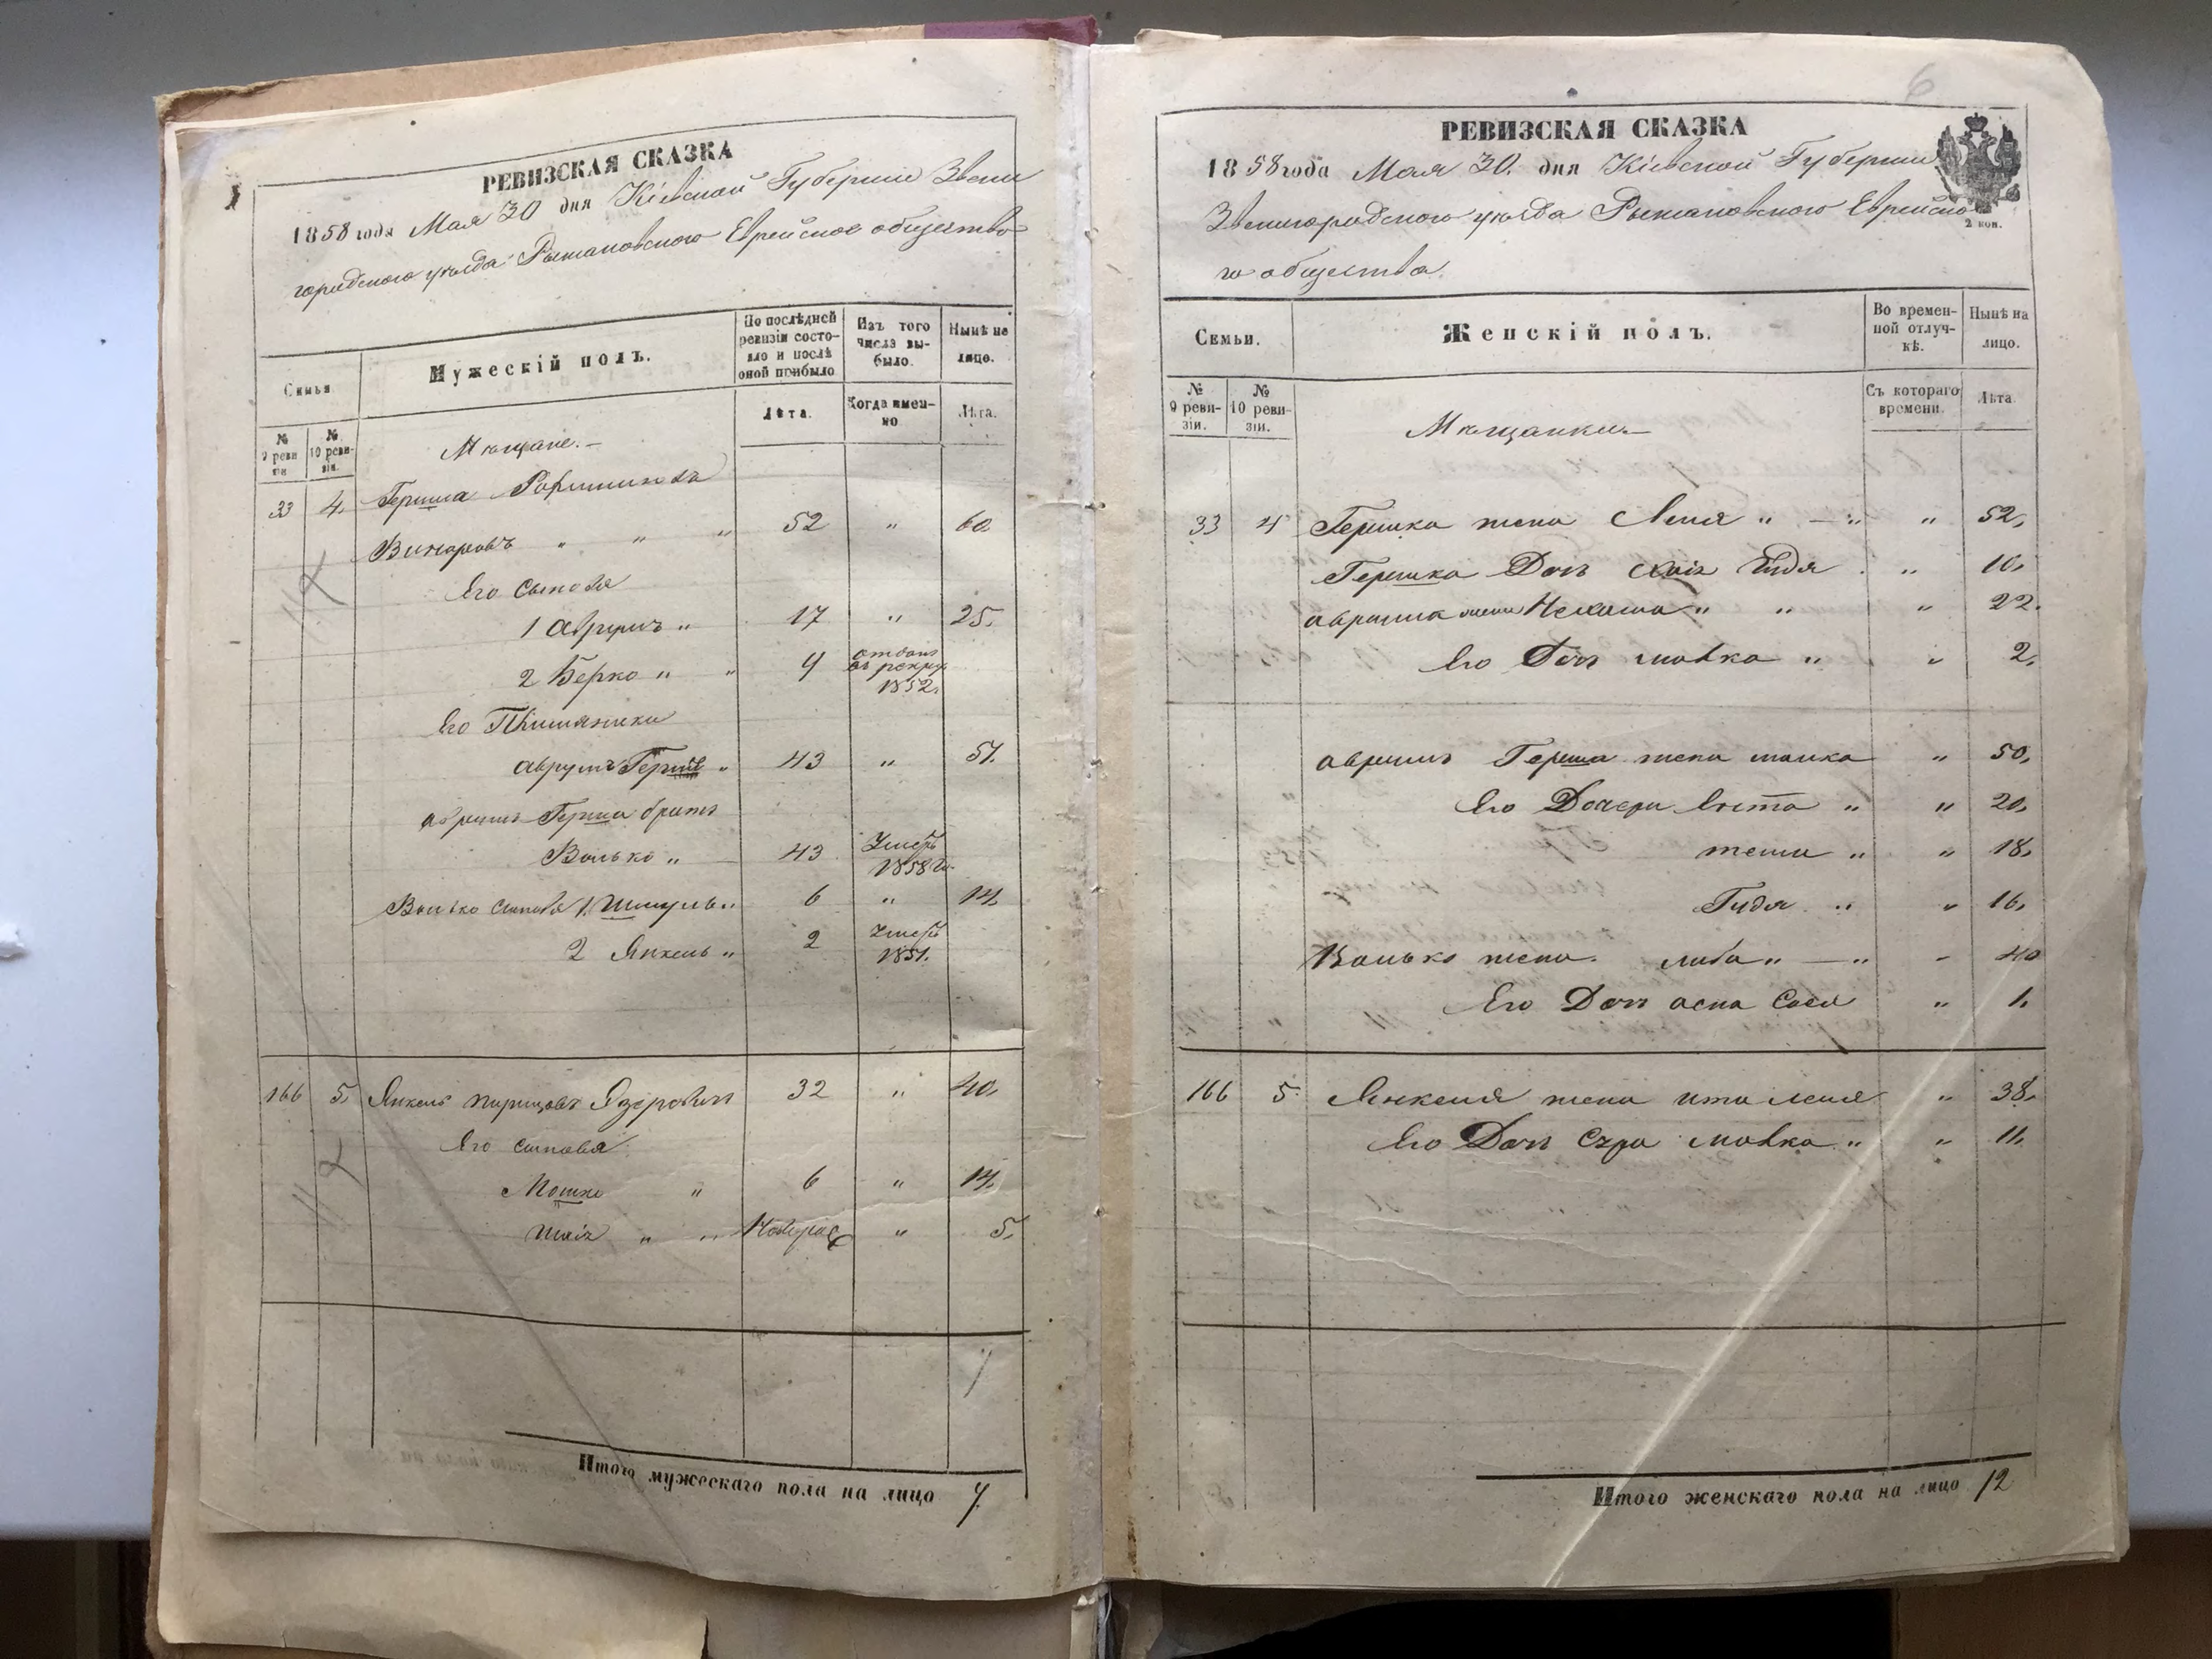 РЕВИЗСКАЯ СКАЗКА
1858 года Мая 30 дня Кіевской Губерніи Звени
городского уѣзда Рыжановского Еврейское общество
Семьи
Мужескій полъ.
По послѣдней ревизіи состояло и послѣ оной прибыло
Изъ того числа выбыло.
Нынѣ на лицо.
№ 9 ревизіи
№ 10 ревизіи.
Лѣта.
Когда именно
Лѣта.
Мѣщане.
33 4. Гершка
Винаровъ " " " 52 " 60
Его сыновя
1 Аврумъ " 17 " 25.
2 Берко " " 9 отданъ въ рекру 1852.
Его Племяники
Аврумъ 43 " 51.
Аврумъ Герша братъ
Волько " 43 Умеръ 1858 г.
Волько сыновя 1. Шмуль " 6 " 14.
2 Янкель " 2 Умеръ 1851.
166 5. Янкель 32 " 40.
Его сыновя
Мошко " 6 " 14.
" " " 5.
Итого мужескаго пола на лицо 7.
6
РЕВИЗСКАЯ СКАЗКА
1858 года Мая 30. дня Кіевской Губерніи
Звенигородского уѣзда Рыжановского Еврейско
го общества.
2 коп.
Семьи.
Женскій полъ.
Во временной отлучкѣ.
Нынѣ на лицо.
№ 9 ревизіи.
№ 10 ревизіи.
Съ котораго времени.
Лѣта
Мѣщанки
33 4 Гершка жена Лея " — " " 52.
Гершка Дочь Хаія " 10.
Аврума жена Нехама " " " 22.
Его Дочь Малка " " 2.
Аврумъ Герша жена " 50.
Его Дочери Ента " " 20.
" " 18.
Гидя " " 16.
Волько жена. Либа " — " " 40
Его Дочь Сося " 1.
166 5. Янкеля жена Ита Лея " 38.
Его Дочь Сура Малка " " 11.
Итого женскаго пола на лицо 12